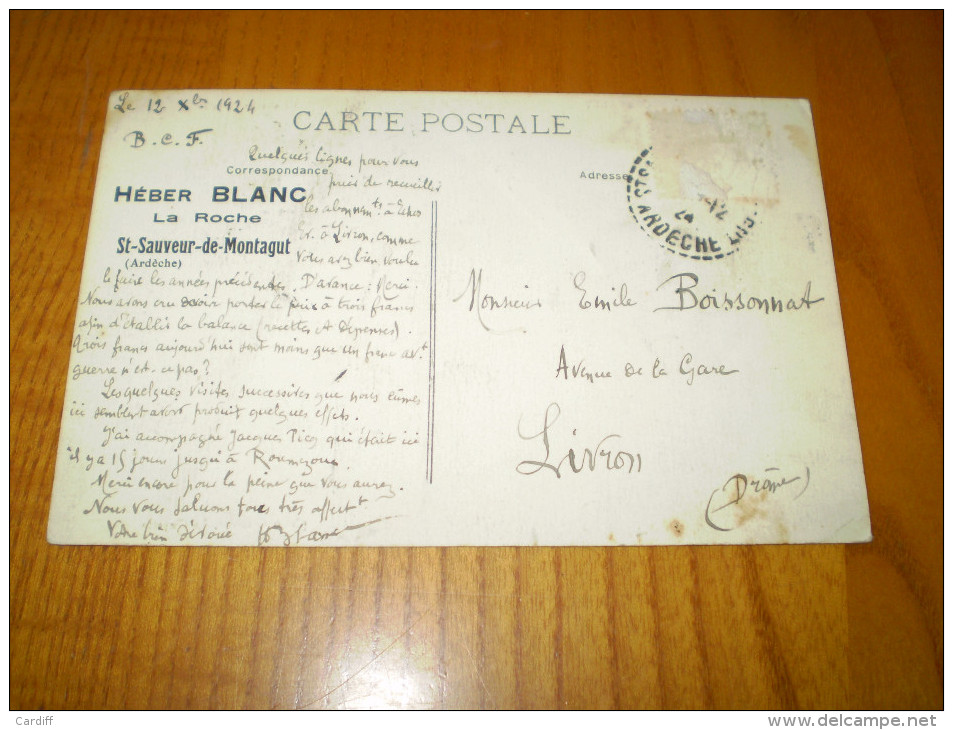 Le 12 Xbre 1924
B. C. F.
CARTE POSTALE
Correspondance
Adresse
HÉBER BLANC
La Roche
St-Sauveur-de-Montagut
(Ardèche)
Quelques lignes pour vous
prier de recueillir
les abonnemts à
à Livron, comme
vous avez bien voulu
le faire les années précédentes. D'avance : Merci.
Nous avons cru devoir porter le prix à trois francs
afin d'établir la balance (recettes et Dépenses).
Trois francs aujourd'hui sont moins que un franc avt
guerre n'est-ce pas ?
Les quelques visites successives que nous eûmes
ici semblent avoir produit quelques effets.
J'ai accompagné Jacques qui était ici
il y a 15 jours jusqu'à
Merci encore pour la peine que vous aurez.
Nous vous saluons tous très affectt
Votre bien dévoué H Blanc
Monsieur Emile Boissonnat
Avenue de la Gare
Livron
(Drôme)
ARDÈCHE
24
Cardiff
www.delcampe.net